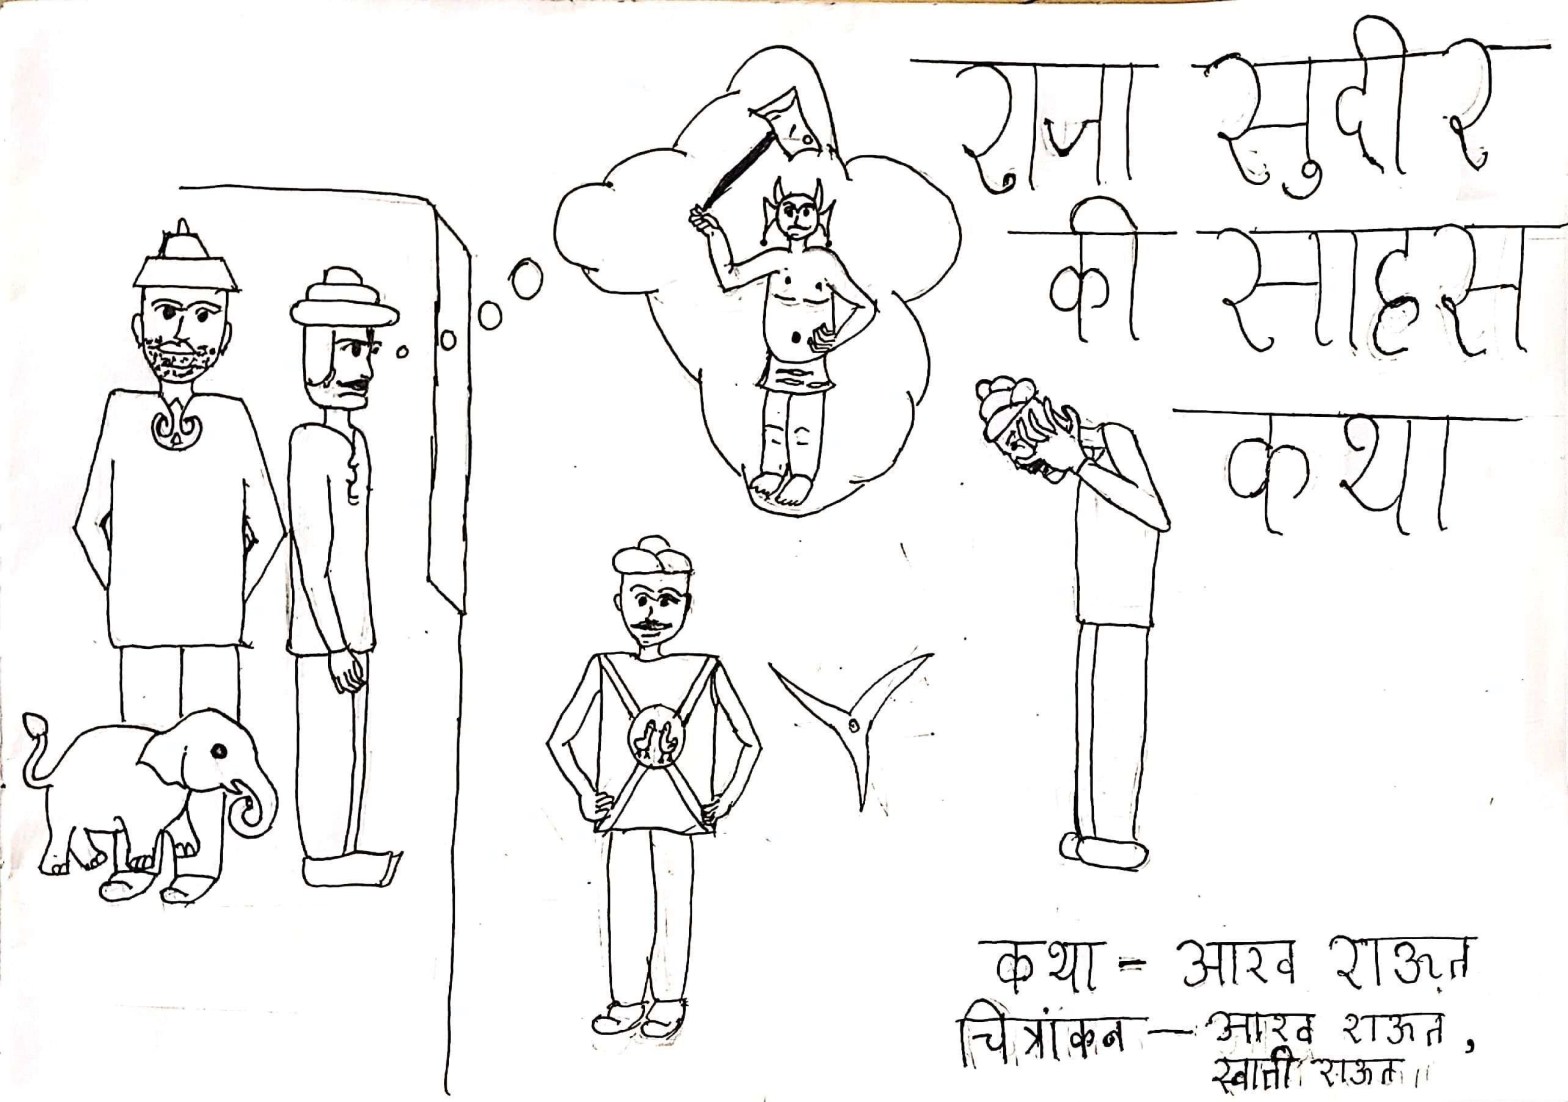 राजा सुदीर
की साहस
कथा
कथा - आरव राऊत
चित्रांकन - आरव राऊत,
स्वाती राऊत